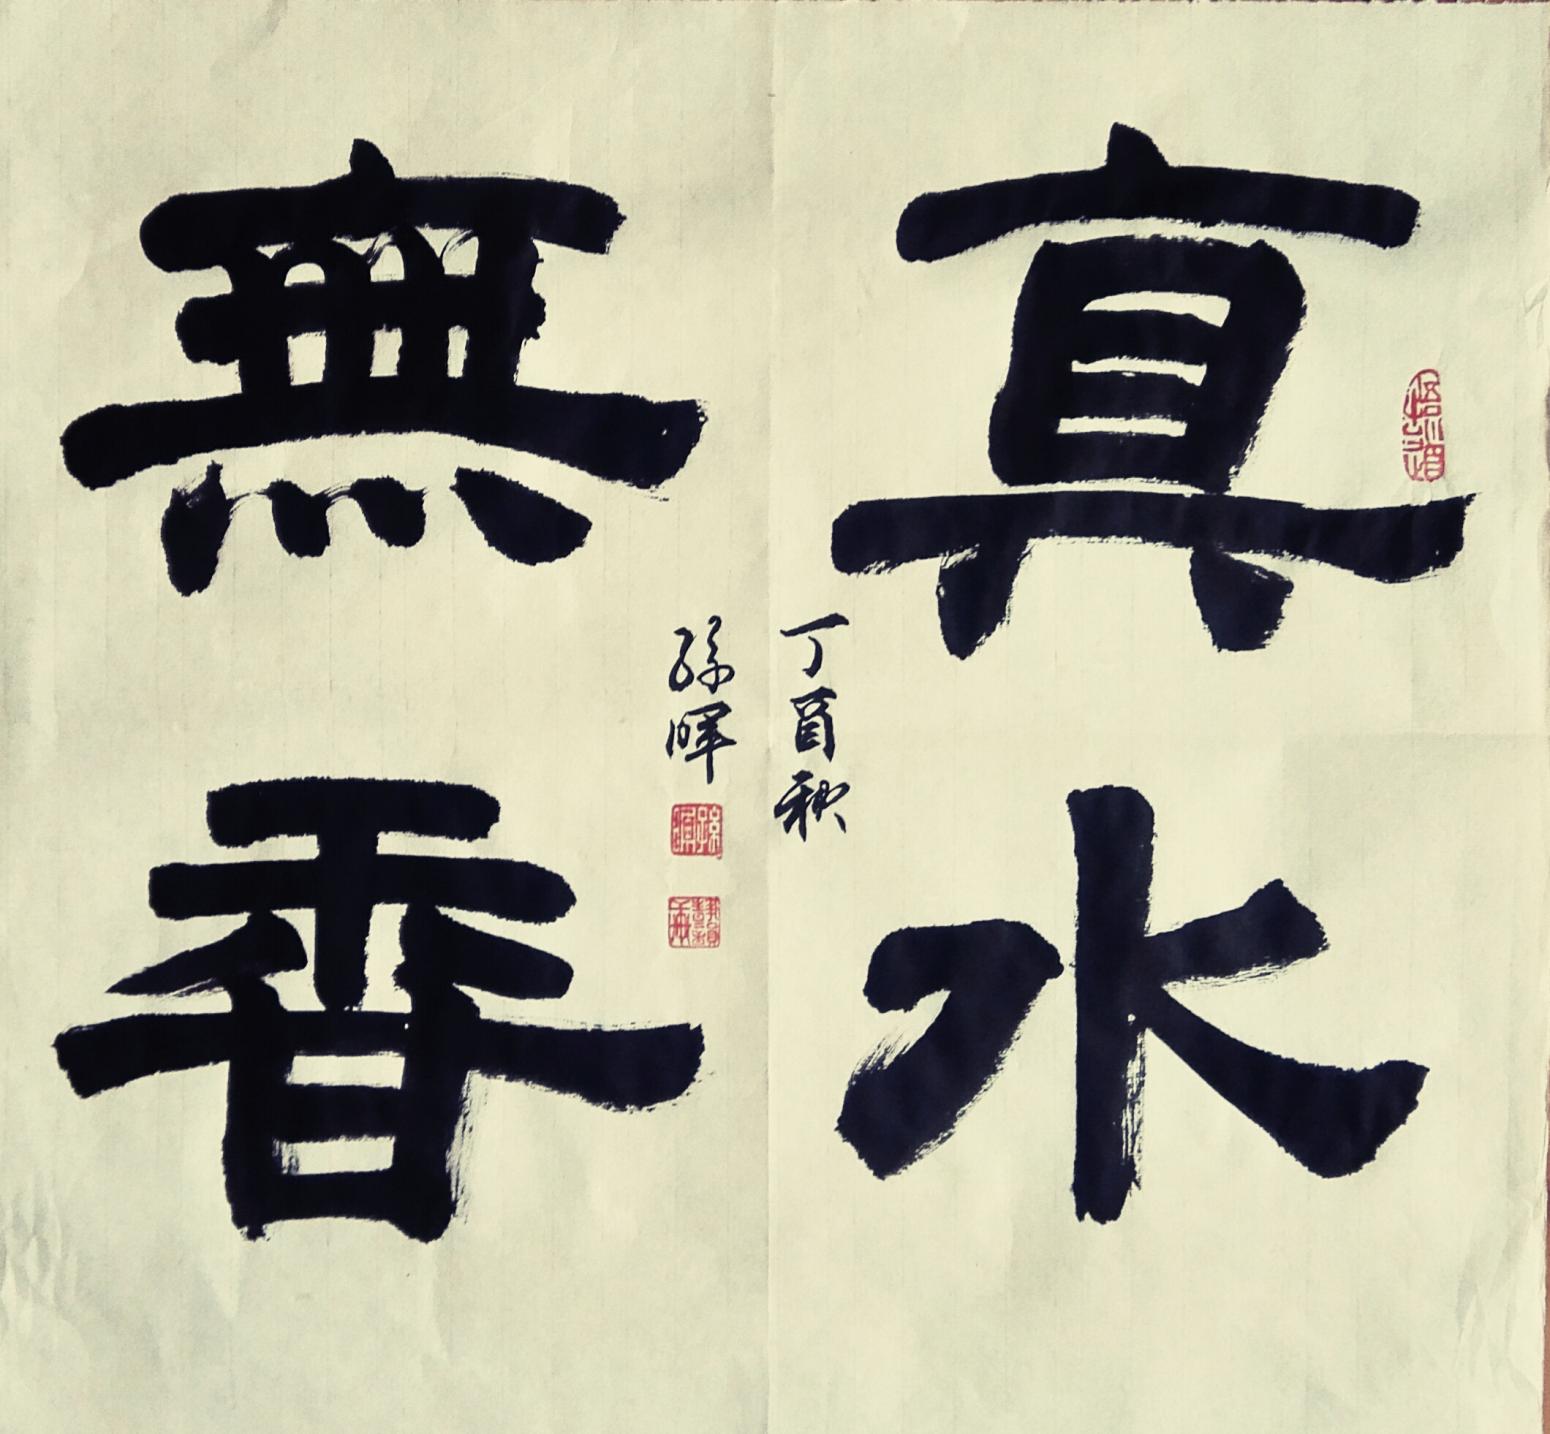 真水
無香
丁酉秋
孫暉